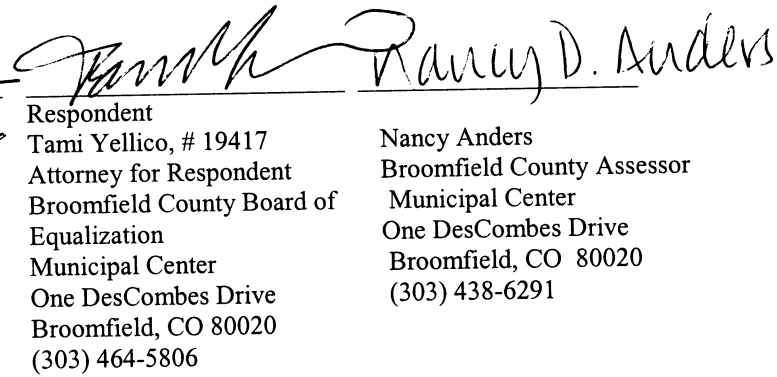 Nancy D. Anders
Respondent
Tami Yellico, # 19417
Attorney for Respondent
Broomfield County Board of
Equalization
Municipal Center
One DesCombes Drive
Broomfield, CO 80020
(303) 464-5806
Nancy Anders
Broomfield County Assessor
Municipal Center
One DesCombes Drive
Broomfield, CO 80020
(303) 438-6291